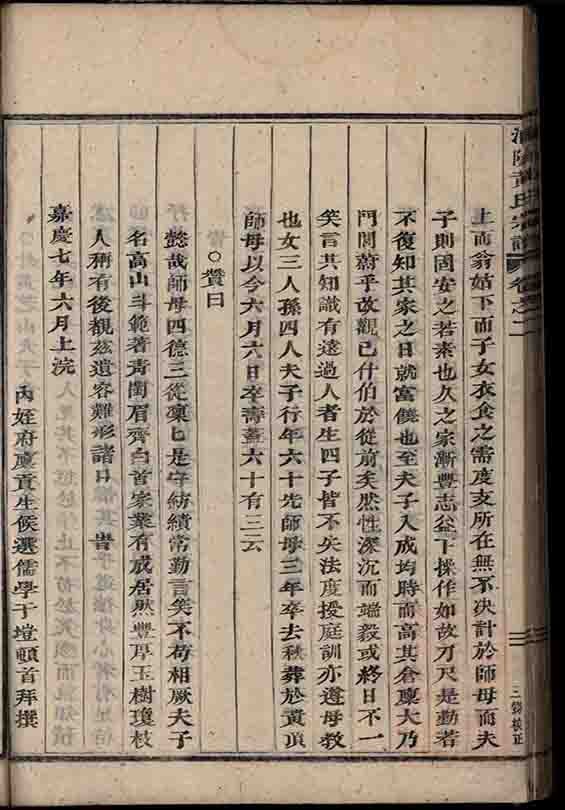 黃氏宗譜 卷之二
三錄校正
上而翁姑下而子女衣食之需度支所在無不决計於師母而夫
子則固安之若素也久之家漸豐志益下操作如故刀尺是勤若
不復知其家之日就富饒也至夫子入成均時而高其倉廩大乃
門閭蔚乎改觀已什伯於從前矣然性深沉而端毅或終日不一
笑言其知識有遠過人者生四子皆不失法度授庭訓亦遵母教
也女三人孫四人夫子行年六十先師母三年卒去秋葬於黃頂
師母以今六月六日卒壽蓋六十有三云
○贊曰
懿哉師母四德三從稟匕是守紡績常勤言笑不苟相厥夫子
名高山斗範著靑閨眉齊白首家業有成居然豐厚玉樹瓊枝
人稱有後覩兹遺容難形諸口 旹
嘉慶七年六月上浣
內姪府廩貢生候選儒學于塏頓首拜撰